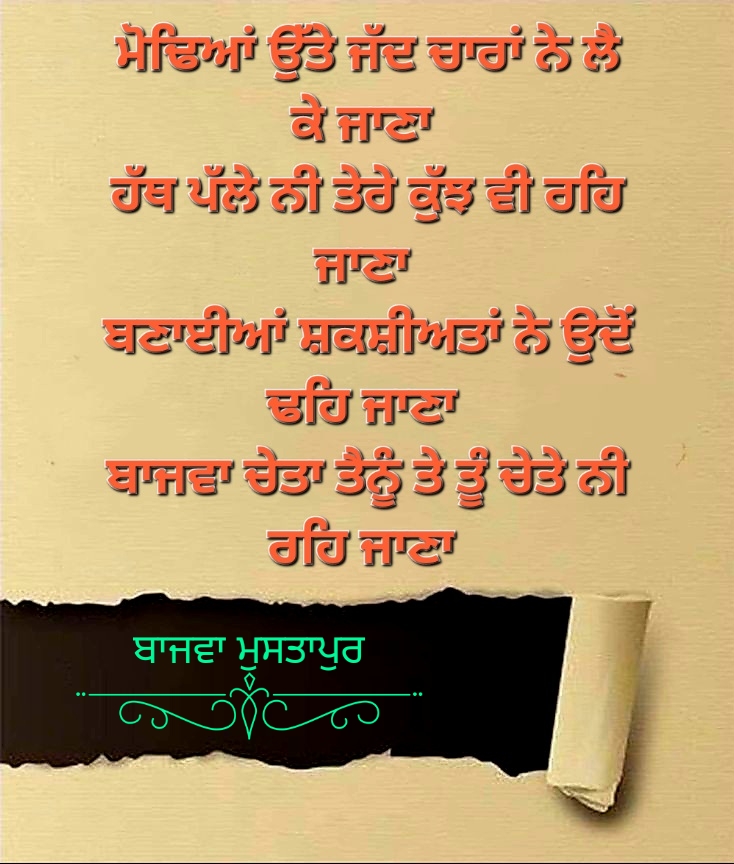 ਮੋਢਿਆਂ ਉੱਤੇ ਜੱਦ ਚਾਰਾਂ ਨੇ ਲੈ
ਕੇ ਜਾਣਾ
ਹੱਥ ਪੱਲੇ ਨੀ ਤੇਰੇ ਕੁੱਝ ਵੀ ਰਹਿ
ਜਾਣਾ
ਬਣਾਈਆਂ ਸ਼ਕਸ਼ੀਅਤਾਂ ਨੇ ਉਦੋਂ
ਢਹਿ ਜਾਣਾ
ਬਾਜਵਾ ਚੇਤਾ ਤੈਨੂੰ ਤੇ ਤੂੰ ਚੇਤੇ ਨੀ
ਰਹਿ ਜਾਣਾ
ਬਾਜਵਾ ਮੁਸਤਾਪੁਰ